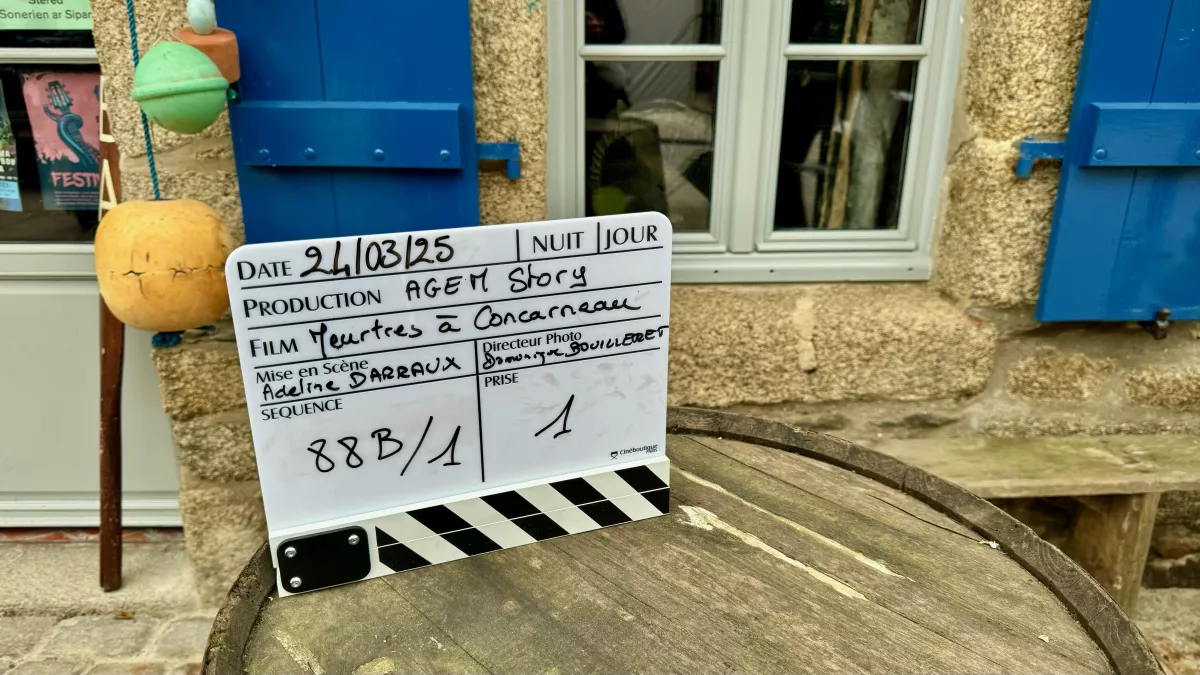 Stered
Sonerien ar Sipar
FESTI
DATE 24/03/25 NUIT JOUR
PRODUCTION AGEM Story
FILM Meurtres à Concarneau
Mise en Scène Adeline DARRAUX
Directeur Photo Dominique BOUILLERET
SEQUENCE
88B/1
PRISE
1
Cinéboutique